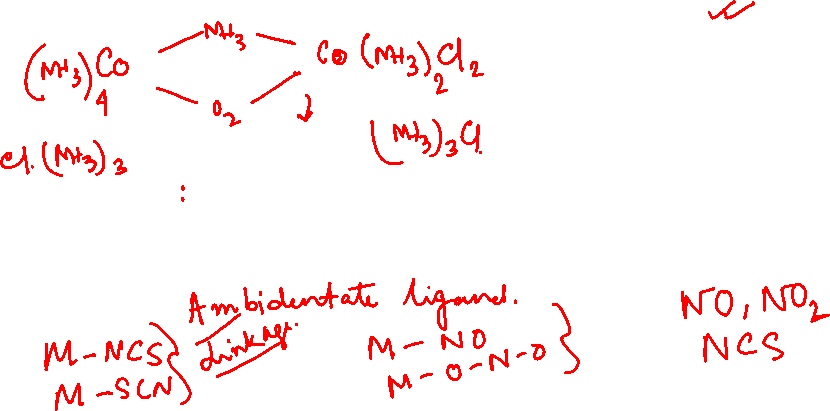 (NH3)4 Co — NH3 — Co (NH3)2Cl2
— O2 —
Cl.(NH3)3
(NH3)3Cl
:
Ambidentate ligand.
Linkage.
M-NCS
M-SCN
M - NO
M-O-N-O
NO, NO2
NCS